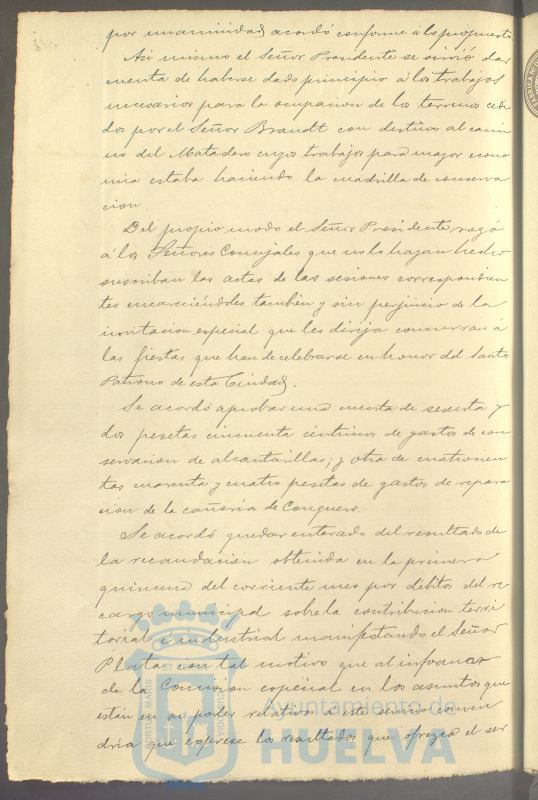 por unanimidad acordó conforme á lo propuesto
Asi mismo el Señor Presidente se sirvió dar
cuenta de haberse dado principio á los trabajos
necesarios para la ocupacion de los terrenos cedi
dos por el Señor Brandt con destino al cami
no del Matadero cuyos trabajos para mayor econo
mia estaba haciendo la cuadrilla de conserva
cion.
Del propio modo el Señor Presidente rogó
á los Señores Concejales que no lo hayan hecho
suscriban las actas de las sesiones correspondien
tes encareciéndoles tambien y sin perjuicio de la
invitacion especial que les dirija concurran á
las fiestas que han de celebrarse en honor del Santo
Patrono de esta Ciudad.
Se acordó aprobar una cuenta de sesenta y
dos pesetas cincuenta céntimos de gastos de con
servacion de alcantarillas; y otra de cuatrocien
tas cuarenta y cuatro pesetas de gastos de repara
cion de la cañeria de Conquero.
Se acordó quedar enterado del resultado de
la recaudacion obtenida en la primera
quincena del corriente mes por débitos del re
cargo municipal sobre la contribucion terri
torial é industrial manifestando el Señor
Plata con tal motivo que al informar
de la Comision especial en los asuntos que
están en su poder relativos á este servicio conven
dria que exprese los resultados que ofrezca el ser
Ayuntamiento de
HUELVA
PORTUS MARIS